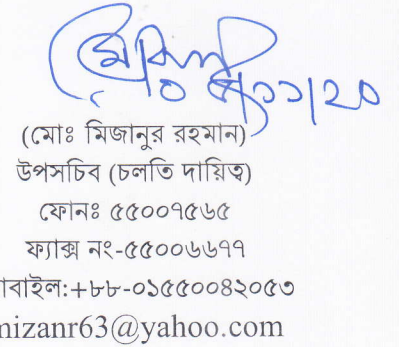 (মোঃ মিজানুর রহমান)
উপসচিব (চলতি দায়িত্ব)
ফোনঃ ৫৫০০৭৫৬৫
ফ্যাক্স নং-৫৫০০৬৬৭৭
াবাইল:+৮৮-০১৫৫০০৪২০৫৩
mizanr63@yahoo.com